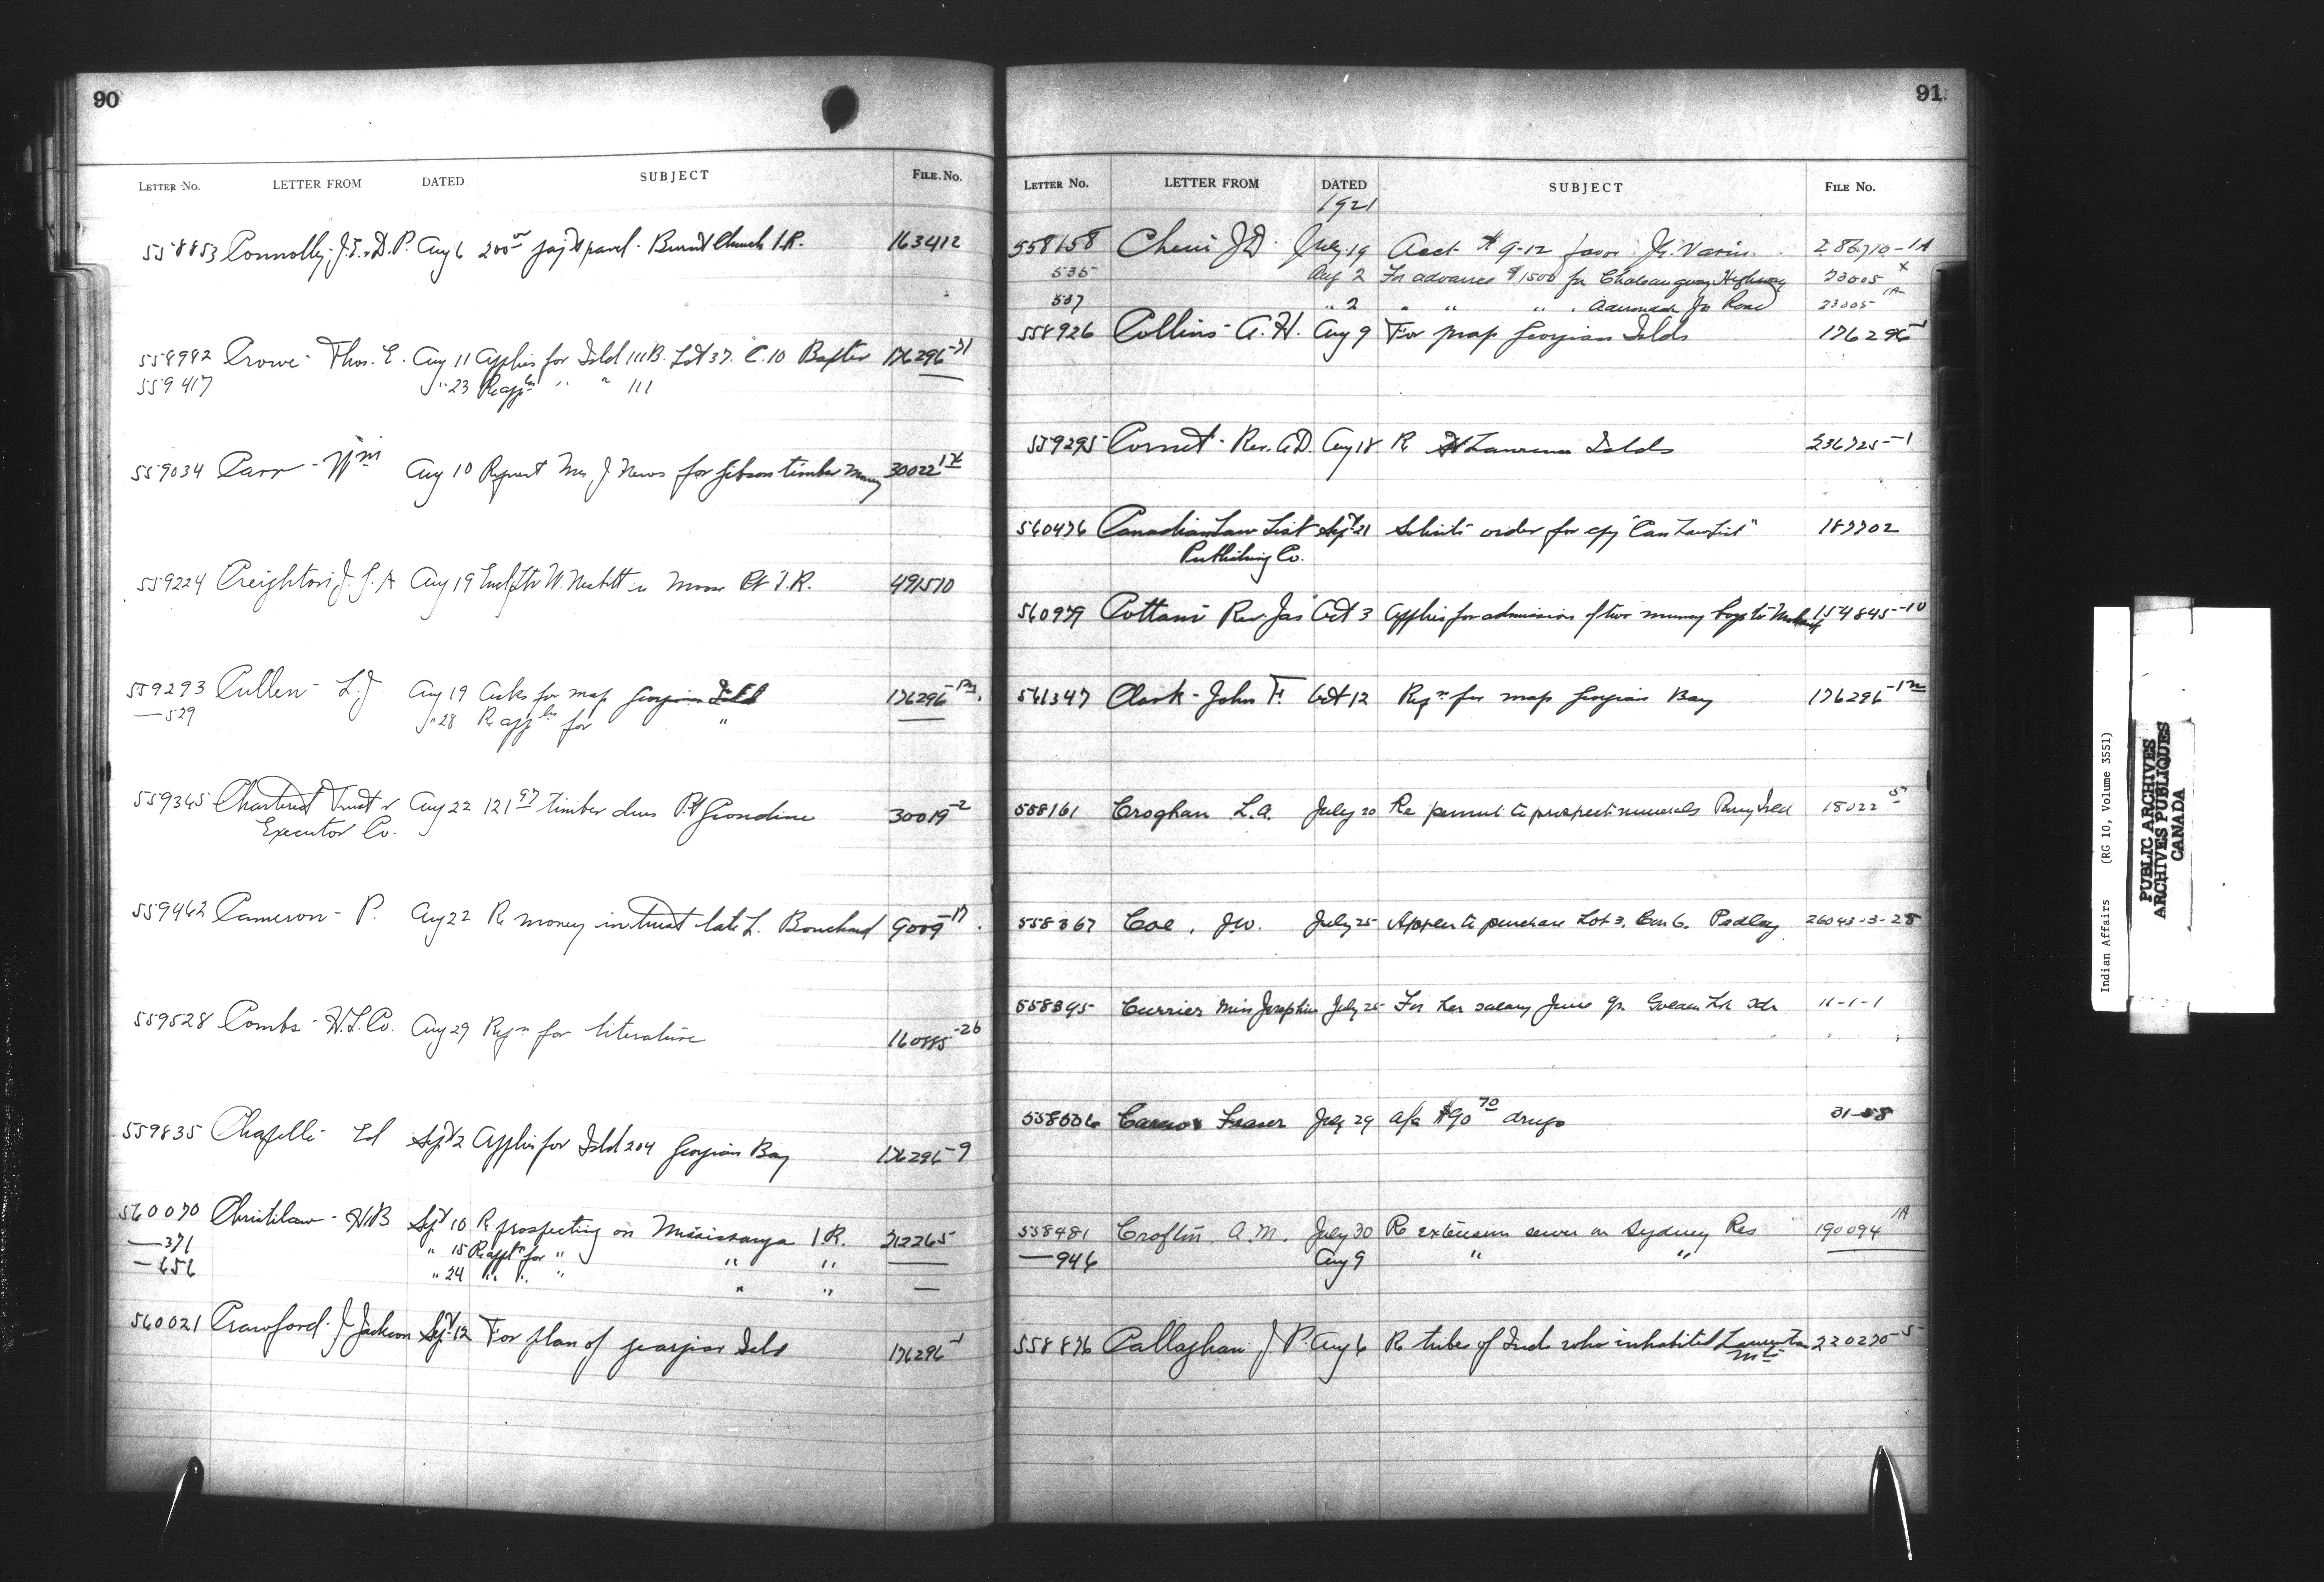 90
LETTER No. LETTER FROM DATED SUBJECT FILE No.
558853 Connolly. J.E. & D.P. Aug 6 200 00 pay't parcl. Burnt Church I.R. 163412
558982 Crowe - Thos. E. Aug 11 Applies for Isld 111B. Lot 37. C.10 Baxter 176296-31
559417 " 23 Re appln " " 111
559034 Carr - Wm Aug 10 Request Mrs J News for Gibson timber money 30022
559224 Creighton J.G.A Aug 19 W. Nesbitt Moose Pt I.R. 491510
559293 Cullen - L.J. Aug 19 Asks for map Georgian Isld 176296
—529 " 28 Re appln for "
559345 Chartered Trust & Aug 22 121 97 timber dues Pt Grondine 30019-2
Executor Co.
559462 Cameron - P. Aug 22 Re money in trust late L. Bouchard 9009-17
559528 Combs - H.L. Co. Aug 29 Reqn for literature 160885-26
559835 Chapelle - Ed Sept 2 Applies for Isld 204 Georgian Bay 176296-9
560070 Christilaw - H.B Sept 10 R prospecting on Mississauga I.R. 312265
—371 " 15 Re appln for " " "
—656 " 24 " " " " "
560021 Crawford. J. Jackson Sept 12 For plan of Georgian Isld 176296-1
91
LETTER No. LETTER FROM DATED SUBJECT FILE No.
1921
558158 J.D. July 19 Acct # 9-12 favor 286710-1A
535 Aug 2 For advance $1500 for Chateauguay Highway 23005 X
537 " 2 " " " Road 23005 1A
558926 Collins - A.H. Aug 9 For map Georgian Islds 176296-1
559295 Cornet - Rev. A.D. Aug 18 R St Lawrence Islds 236725-1
560476 Canadian Law List Sept 21 Solicits order for cpy "Can Law List" 187702
Publishing Co.
560979 Cottam Rev. Jas Oct 3 Applies for admission of two muncey boys to 154845-10
561347 Clark - John F. Oct 12 Reqn for map Georgian Bay 176296
558161 Croghan L.A. July 20 Re permit to prospect minerals Parry Isld 18022 5
558367 Coe, J.W. July 25 Applies to purchase Lot 3, Con 6. Pedley 26043-3-28
558395 Currier Miss Josephine July 25 For her salary June qr. Golden Lk Sch 11-1-1
558506 Fraser July 29 a/c $90 70 drugs 31-58
558481 Croftin A.M. July 30 Re extension sewer on Sydney Res 190094 1A
—946 Aug 9 " "
558876 Callaghan J P. Aug 6 R tribes of Inds who inhabited Laurentian 220270-5
Mts
Indian Affairs (RG 10, Volume 3551)
PUBLIC ARCHIVES
ARCHIVES PUBLIQUES
CANADA